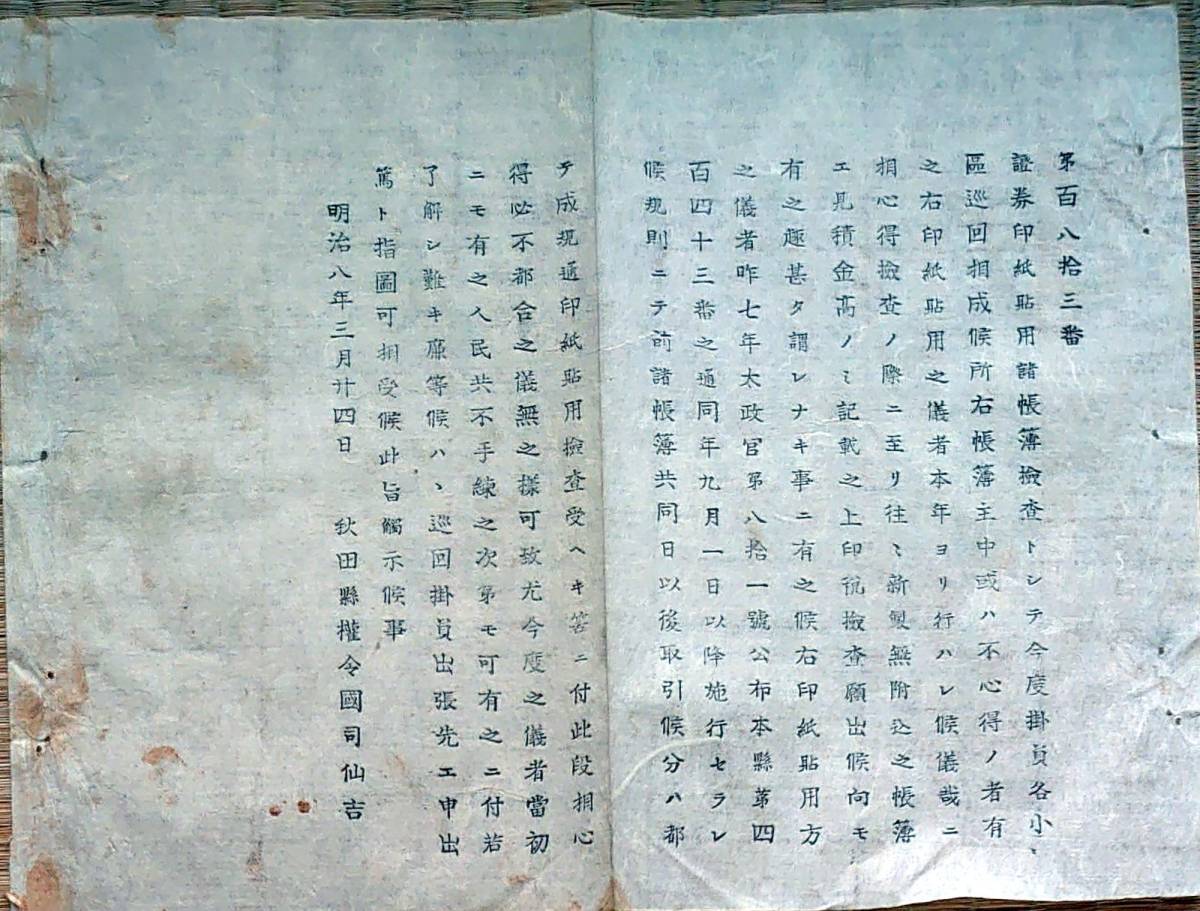 第百八拾三番
證券印紙貼用諸帳簿撿査トシテ今度掛員各小〻
區巡回相成候所右帳簿主中或ハ不心得ノ者有
之右印紙貼用之儀者本年ヨリ行ハレ候儀哉ニ
相心得撿査ノ際ニ至リ往〻新製無附込之帳簿
エ見積金高ノミ記載之上印税撿査願出候向モ
有之趣甚タ謂レナキ事ニ有之候右印紙貼用方
之儀者昨七年太政官第八拾一號公布本縣第四
百四十三番之通同年九月一日以降施行セラレ
候規則ニテ前諸帳簿共同日以後取引候分ハ都
テ成規通印紙貼用撿査受ヘキ筈ニ付此段相心
得必不都合之儀無之様可致尤今度之儀者當初
ニモ有之人民共不手練之次第モ可有之ニ付若
了解シ難キ廉等候ハヽ巡回掛員出張先エ申出
篤ト指圖可相受候此旨觸示候事
明治八年三月廿四日 秋田縣權令國司仙吉